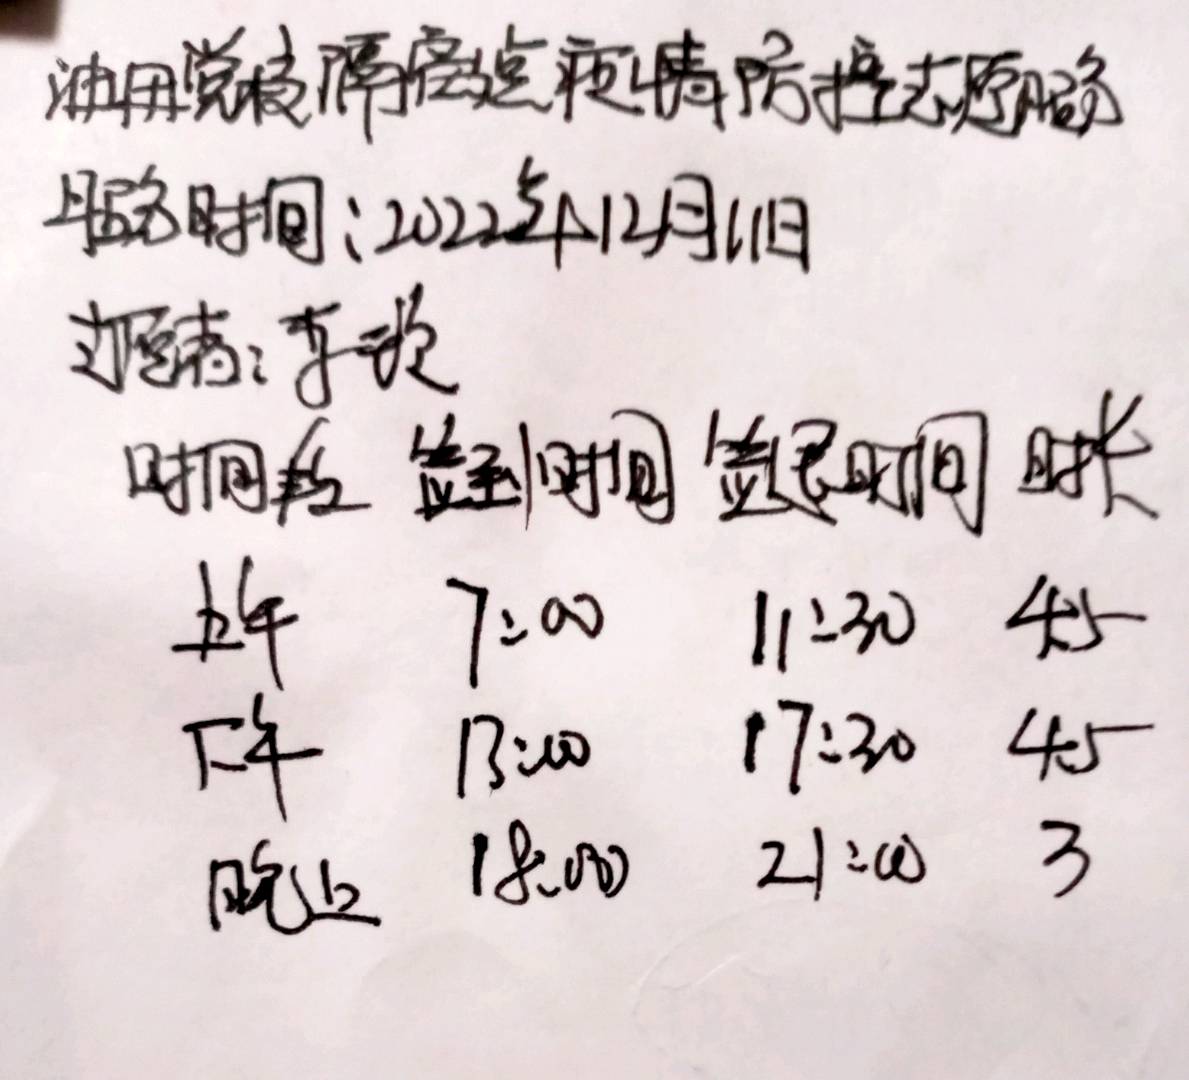 油田党校隔离点疫情防控志愿服务
服务时间:2022年12月11日
志愿者:李一
时间段 签到时间 签退时间 时长
上午 7:00 11:30 4.5
下午 13:00 17:30 4.5
晚上 18:00 21:00 3